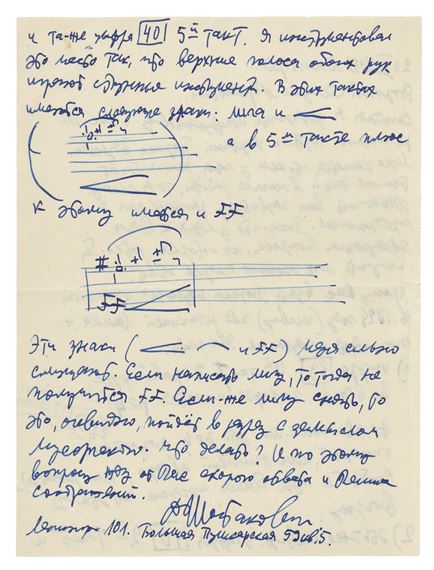 и та-же цифра 40 5й такт. Я инструментовал
это место так, что верхние голоса обоих рук
играют струнные инструмент. В этих тактах
имеются следующие знаки: лига и
а в 5м такте плюс
к этому имеется и FF
FF
Эти знаки ( и FF) меня сильно
смущают. Если написать лигу, то тогда не
получится FF. Если-же лигу снять, то
это, очевидно, пойдёт в разрез с замыслом
Мусоргского. Что делать? И по этому
вопросу жду от Вас скорого ответа и Ваших
соображений.
ДШостакович
Ленинград 101. Большая Пушкарская 59 кв. 5.